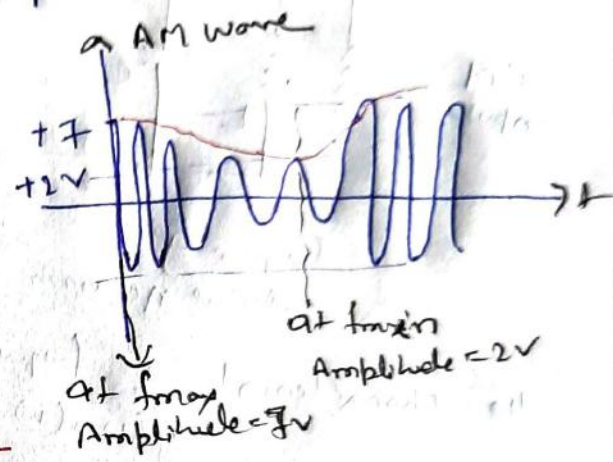 a AM wave
+7
+2V
t
at fmin
Amplitude = 2V
at fmax
Amplitude = 7V